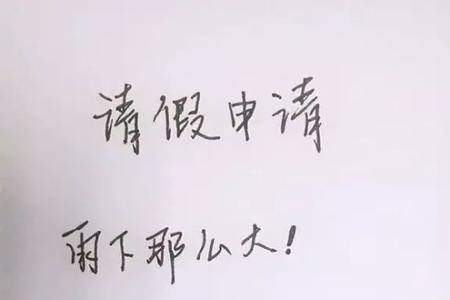 请假申请
雨下那么大！